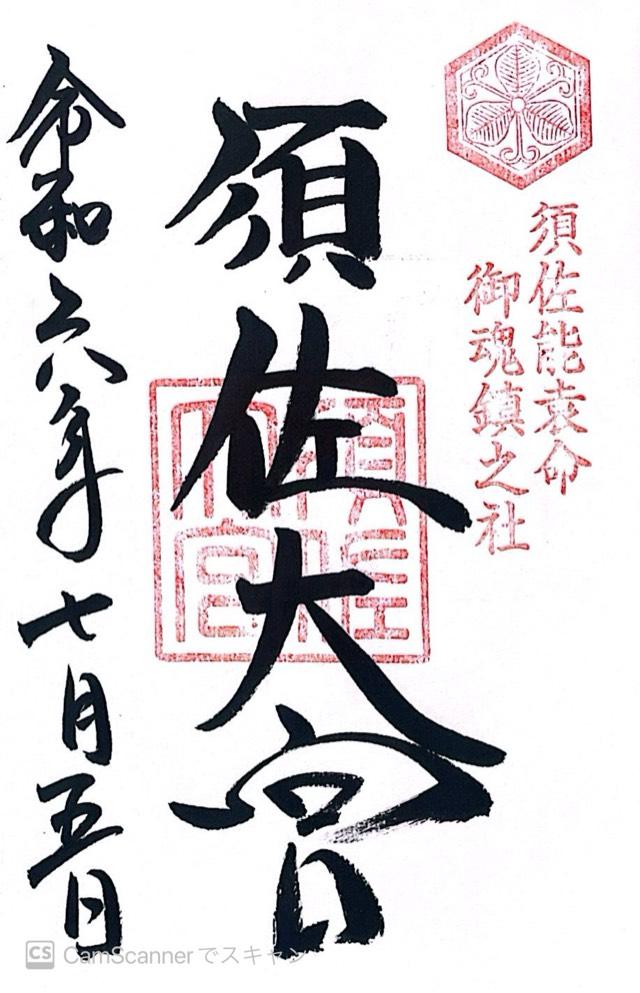 須佐能袁命
御魂鎮之社
須佐大宮
須佐大宮
令和六年七月五日
CS CamScannerでスキャン